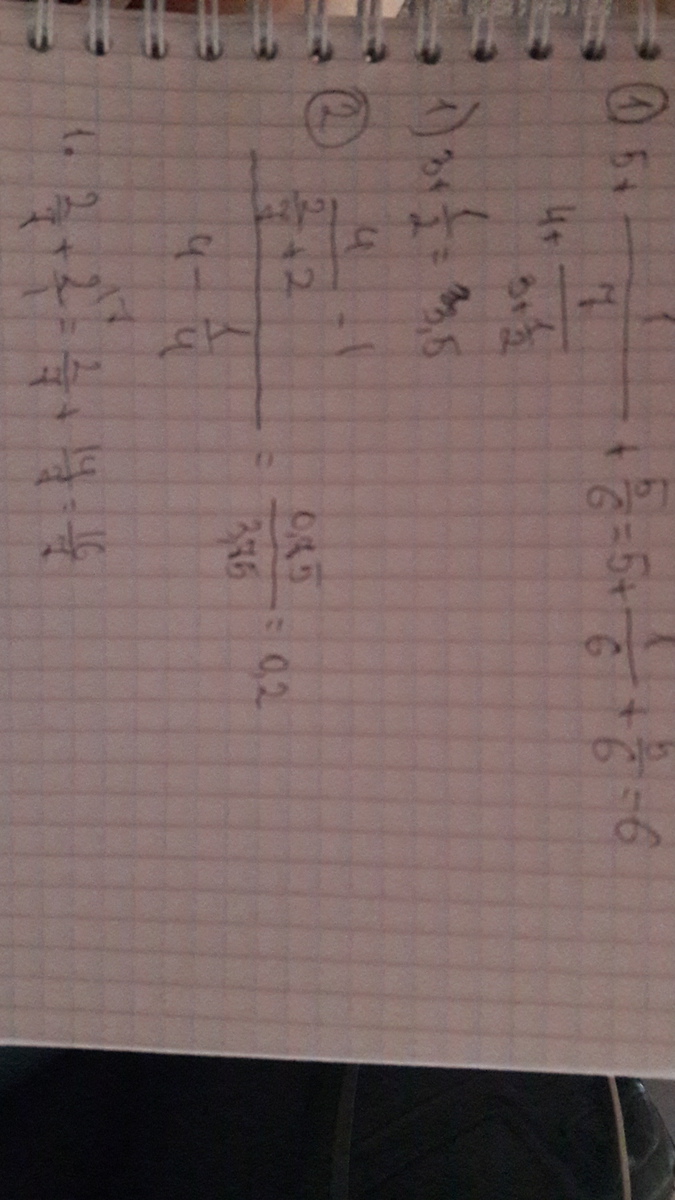 ① 5 + 1/(4 + 7/(3 + 1/2)) + 5/6 = 5 + 1/6 + 5/6 = 6
1) 3 + 1/2 = 3,5
② (4/(2/7 + 2) - 1)/(4 - 1/4) = 0,75/3,75 = 0,2
1. 2/7 + 2/1 = 2/7 + 14/7 = 16/7